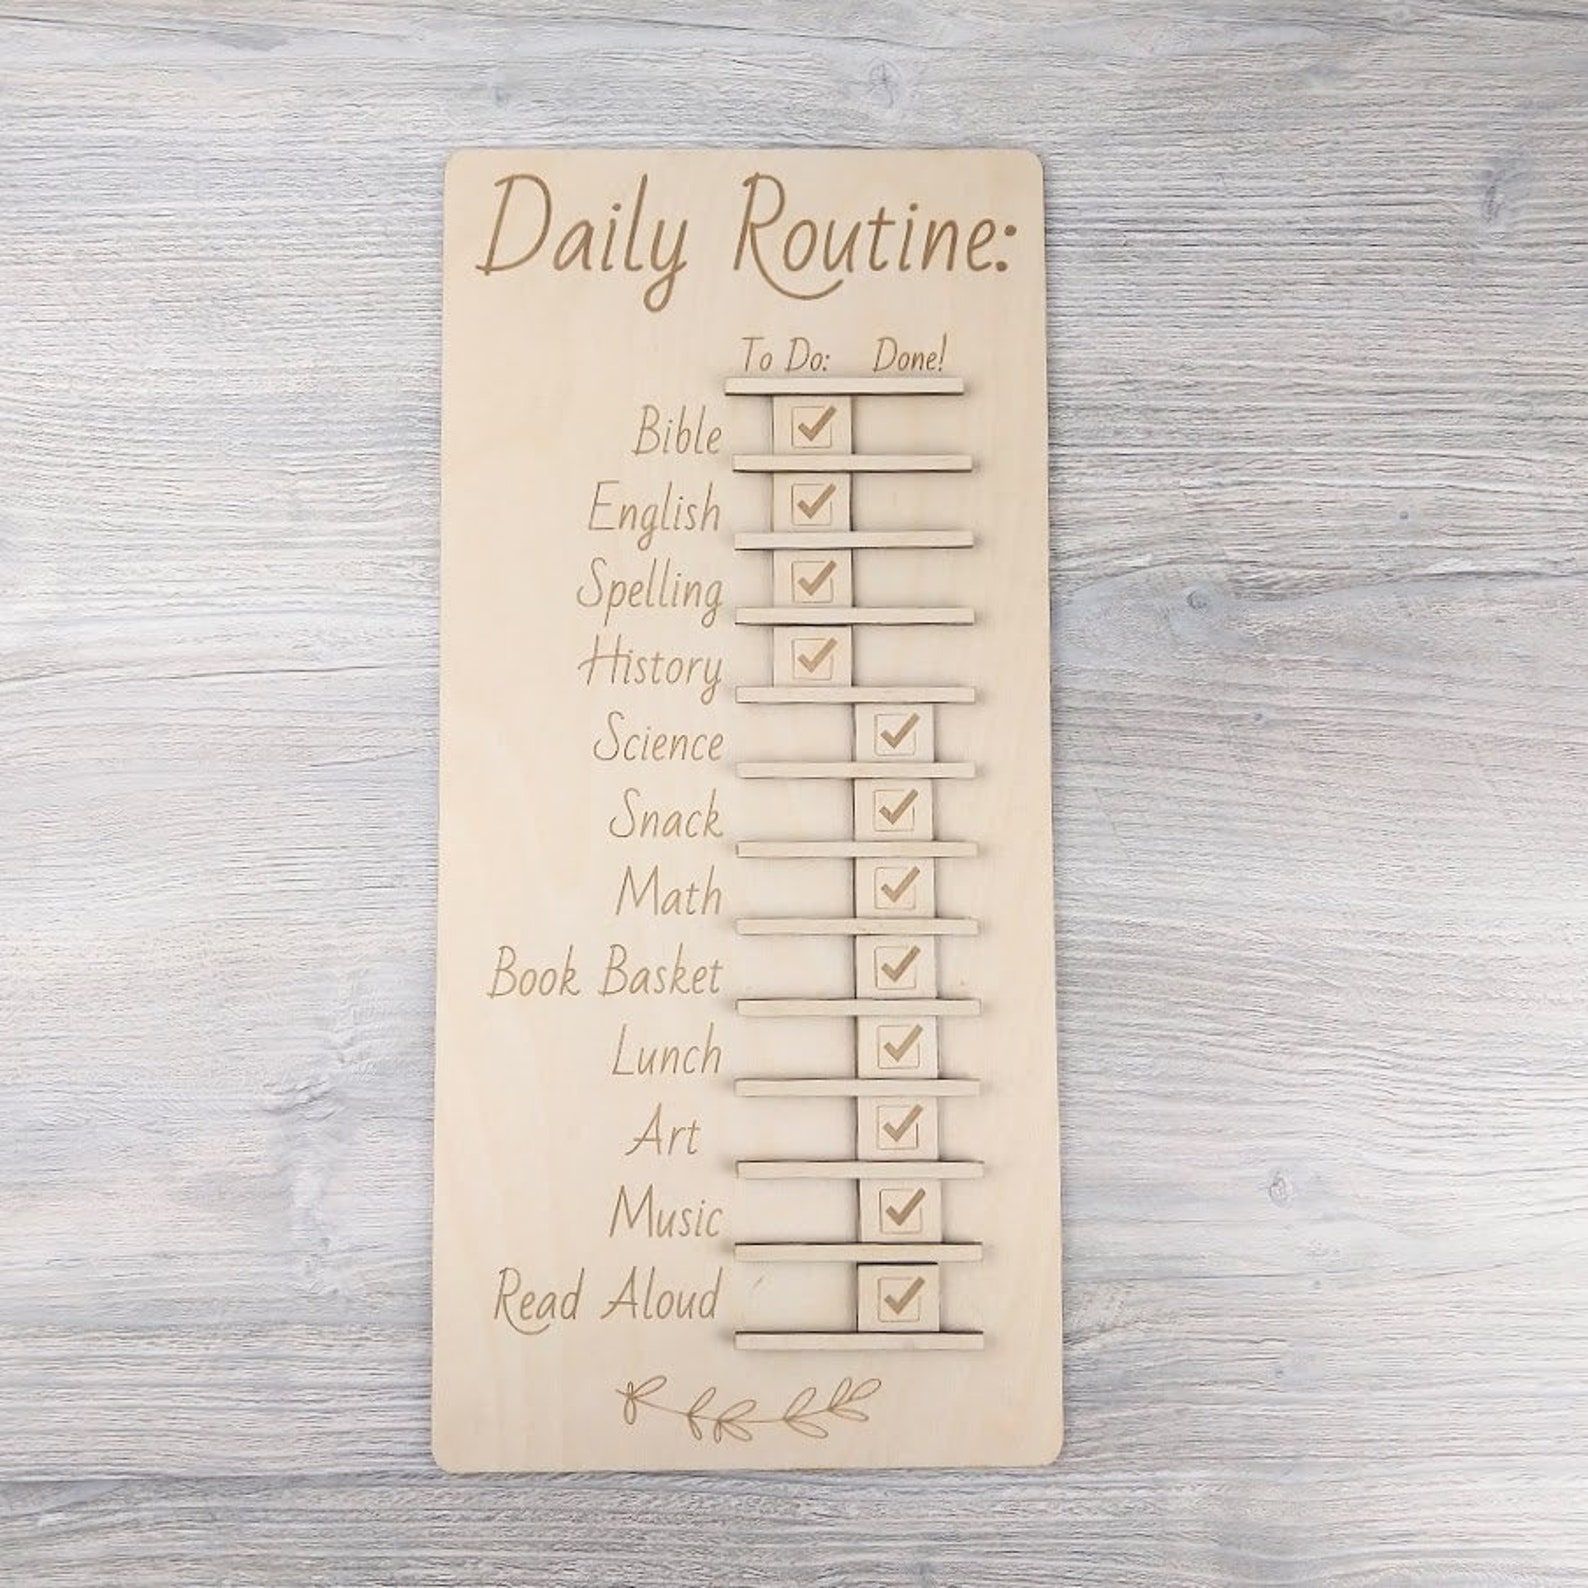 Daily Routine:
To Do: Done!
Bible
English
Spelling
History
Science
Snack
Math
Book Basket
Lunch
Art
Music
Read Aloud